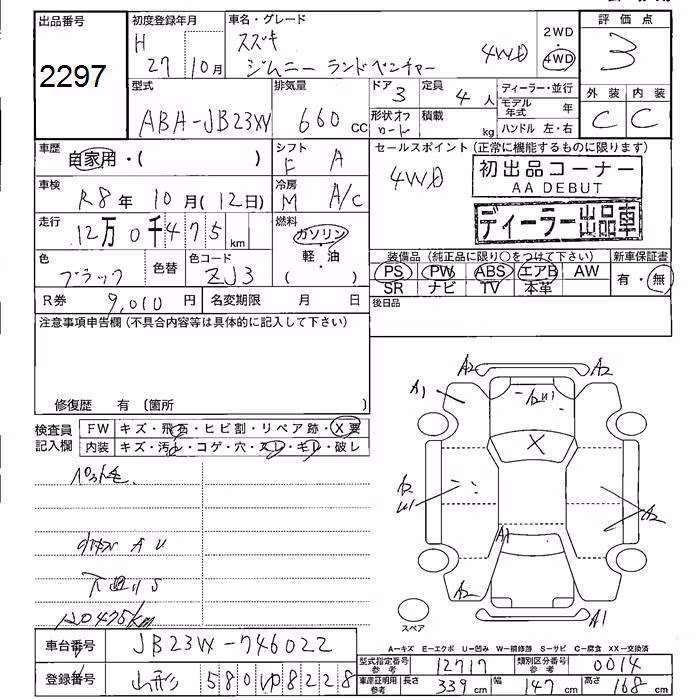 出品番号
2297
初度登録年月
H
27 10月
車名・グレード
スズキ
ジムニー ランドベンチャー
4WD
2WD
4WD
評価点
3
外装 内装
C C
型式
ABA-JB23W
排気量
660 cc
ドア
3
定員
4人
形状
積載
kg
ディーラー・並行
モデル年式 年
ハンドル 左・右
車歴
自家用・( )
シフト
F A
セールスポイント(正常に機能するものに限ります)
4WD
初出品コーナー
AA DEBUT
ディーラー出品車
車検
R8年 10月(12日)
冷房
M A/C
走行
12万0千475km
燃料
ガソリン
軽・油
( )
色
ブラック
色替
色コード
ZJ3
装備品(純正品に限り○をつけて下さい)
PS PW ABS エアB AW
SR ナビ TV 本革
新車保証書
有・無
R券 9,010円
名変期限 月 日
後日品
注意事項申告欄(不具合内容等は具体的に記入して下さい)
修復歴 有 (箇所 )
検査員
記入欄
FW キズ・飛石・ヒビ割・リペア跡・X要
内装 キズ・汚れ・コゲ・穴・スレ・キレ・破し
A U
120475km
A2 A2
A1
X
A2
A1
A2
A1
スペア
A-キズ E-エクボ U-凹み W-補修跡 S-サビ C-腐食 XX-交換済
車台番号 JB23W-746022
登録番号 山形 580 ゆ 8228
型式指定番号
参考
12717
類別区分番号
参考
0014
車庫証明用
参考
長さ 339cm 幅 147cm 高さ 168cm